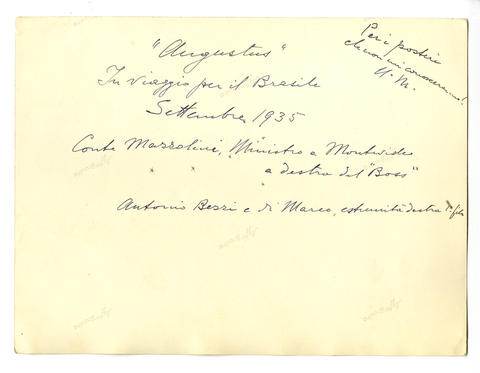 "Augustus"
In viaggio per il Brasile
Settembre 1935
Conte Mazzolini, Ministro a Montevideo
a destra del "Boss"
Antonio Bezzi e di Marco, estremità destra 1ª fila
Per i posteri
che non mi conosceranno!
U. M.